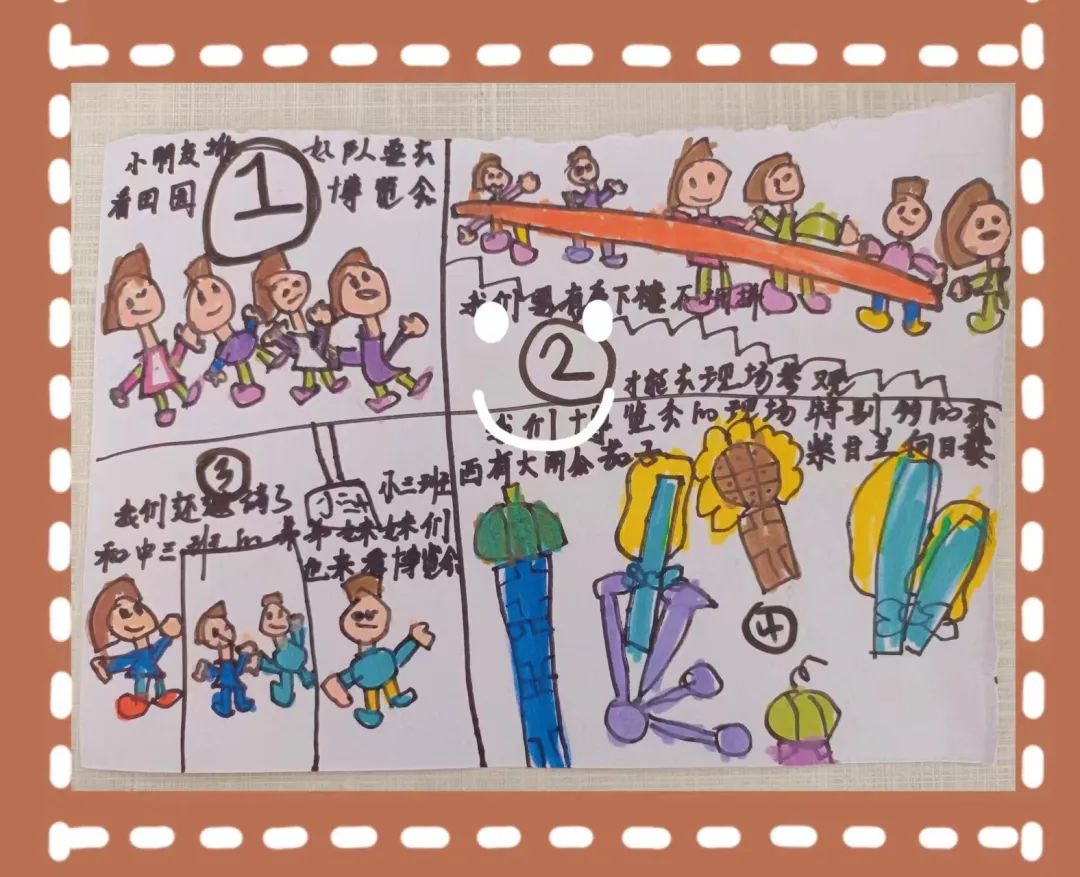 小朋友排 1 好队要去
看田园 博览会
我们要有序下楼不拥挤
2
才能去现场参观
3
我们还邀请了 小三班
和中三班的弟弟妹妹们
也来看博览会
我们博览会的现场特别多的东
西有大南瓜茄子 向日葵
4